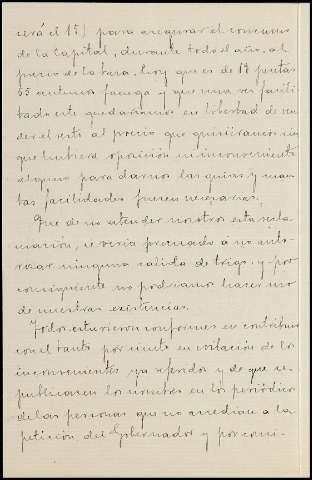 será el 15) para asegurar el consumo
de la Capital, durante todo el año, al
precio de la tasa, hoy que es de 18 pesetas
55 centimos fanega y que una vez facili-
tado este quedariamos en libertad de ven-
der el resto al precio que quisieramos sin
que hubiera oposición ni inconveniente
alguno para darnos las guias y cuan-
tas facilidades fueren necesarias.
Que de no atender nosotros esta recla-
mación, se veria precisado á no auto-
rizar ninguna salida de trigo, y por
consiguiente no podriamos hacer uso
de nuestras existencias.
Todos estuvieron conformes en contribuir
con el tanto por ciento en evitación de los
inconvenientes ya referidos y de que se
publicasen los nombres en los periódicos
de las personas que no accedian a la
petición del Gobernador y por consi-